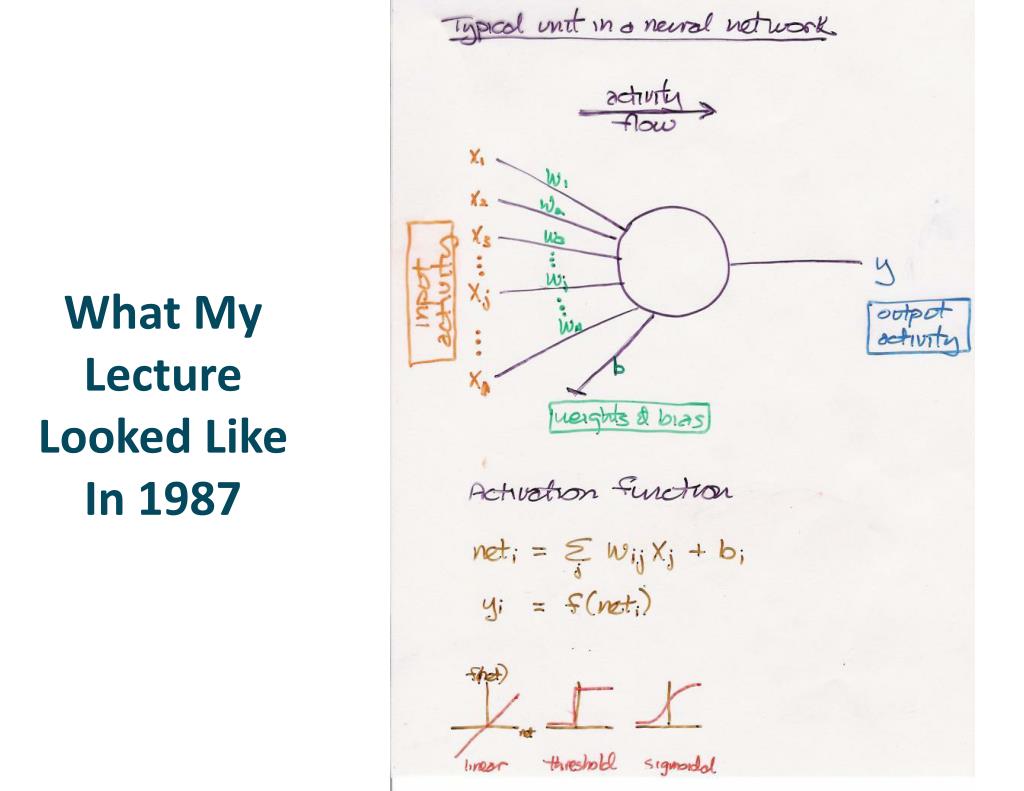 What My
Lecture
Looked Like
In 1987
Typical unit in a neural network
activity
flow
x₁
w₁
x₂
w₂
x₃
w₃
⋮
xⱼ
wⱼ
⋮
wₙ
xₙ
input
activity
y
output
activity
b
weights & bias
Activation function
netᵢ = Σⱼ wᵢⱼ xⱼ + bᵢ
yᵢ = f(netᵢ)
f(net)
net
linear threshold sigmoidal